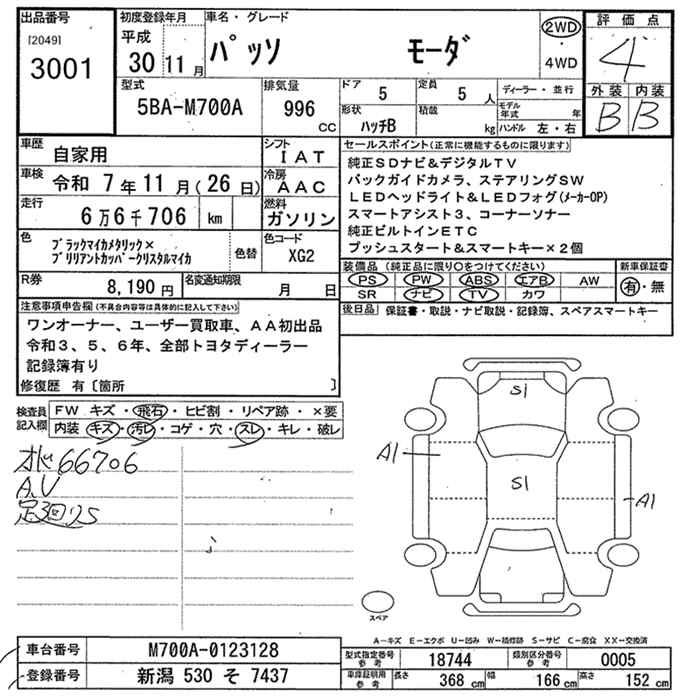 出品番号
[2049]
3001
初度登録年月
平成
30 11月
車名・グレード
パッソ モーダ
2WD
・
4WD
評価点
4
外装 内装
B B
型式
5BA-M700A
排気量
996
CC
ドア
5
定員
5 人
形状
ハッチB
積載
kg
ディーラー・並行
モデル年式 年
ハンドル 左・右
車歴
自家用
シフト
IAT
車検
令和 7年11月(26日)
冷房
AAC
走行
6万6千706 km
燃料
ガソリン
色
ブラックマイカメタリック×
ブリリアントカッパークリスタルマイカ
色替
色コード
XG2
R券
8,190円
名変通知期限
月 日
セールスポイント(正常に機能するものに限ります)
純正SDナビ&デジタルTV
バックガイドカメラ、ステアリングSW
LEDヘッドライト&LEDフォグ(メーカーOP)
スマートアシスト3、コーナーソナー
純正ビルトインETC
プッシュスタート&スマートキー×2個
装備品(純正品に限り○をつけてください)
PS PW ABS エアB AW
SR ナビ TV カワ
新車保証書
有・無
後日品 保証書・取説・ナビ取説・記録簿、スペアスマートキー
注意事項申告欄(不具合内容等は具体的に記入して下さい)
ワンオーナー、ユーザー買取車、AA初出品
令和3、5、6年、全部トヨタディーラー
記録簿有り
修復歴 有〔箇所 〕
検査員
記入欄
FW キズ・飛石・ヒビ割・リペア跡・×要
内装 キズ・汚レ・コゲ・穴・スレ・キレ・破レ
66706
A.V
S1
A1
S1
A1
スペア
A-キズ E-エクボ U-凹み W-補修跡 S-サビ C-腐食 XX-交換済
車台番号
M700A-0123128
登録番号
新潟 530 そ 7437
型式指定番号
参考
18744
類別区分番号
参考
0005
車庫証明用
参考
長さ 368 cm 幅 166 cm 高さ 152 cm